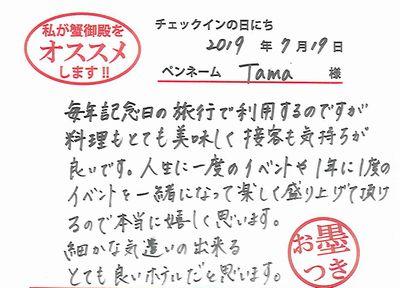 私が蟹御殿を
オススメ
します!!
チェックインの日にち
2019 年 7 月 19 日
ペンネーム Tama 様
毎年記念日の旅行で利用するのですが
料理もとても美味しく接客も気持ちが
良いです。人生に一度のイベントや1年に1度の
イベントを一緒になって楽しく盛り上げて頂け
るので本当に嬉しく思います。
細かな気遣いの出来る
とても良いホテルだと思います。
お墨
つき